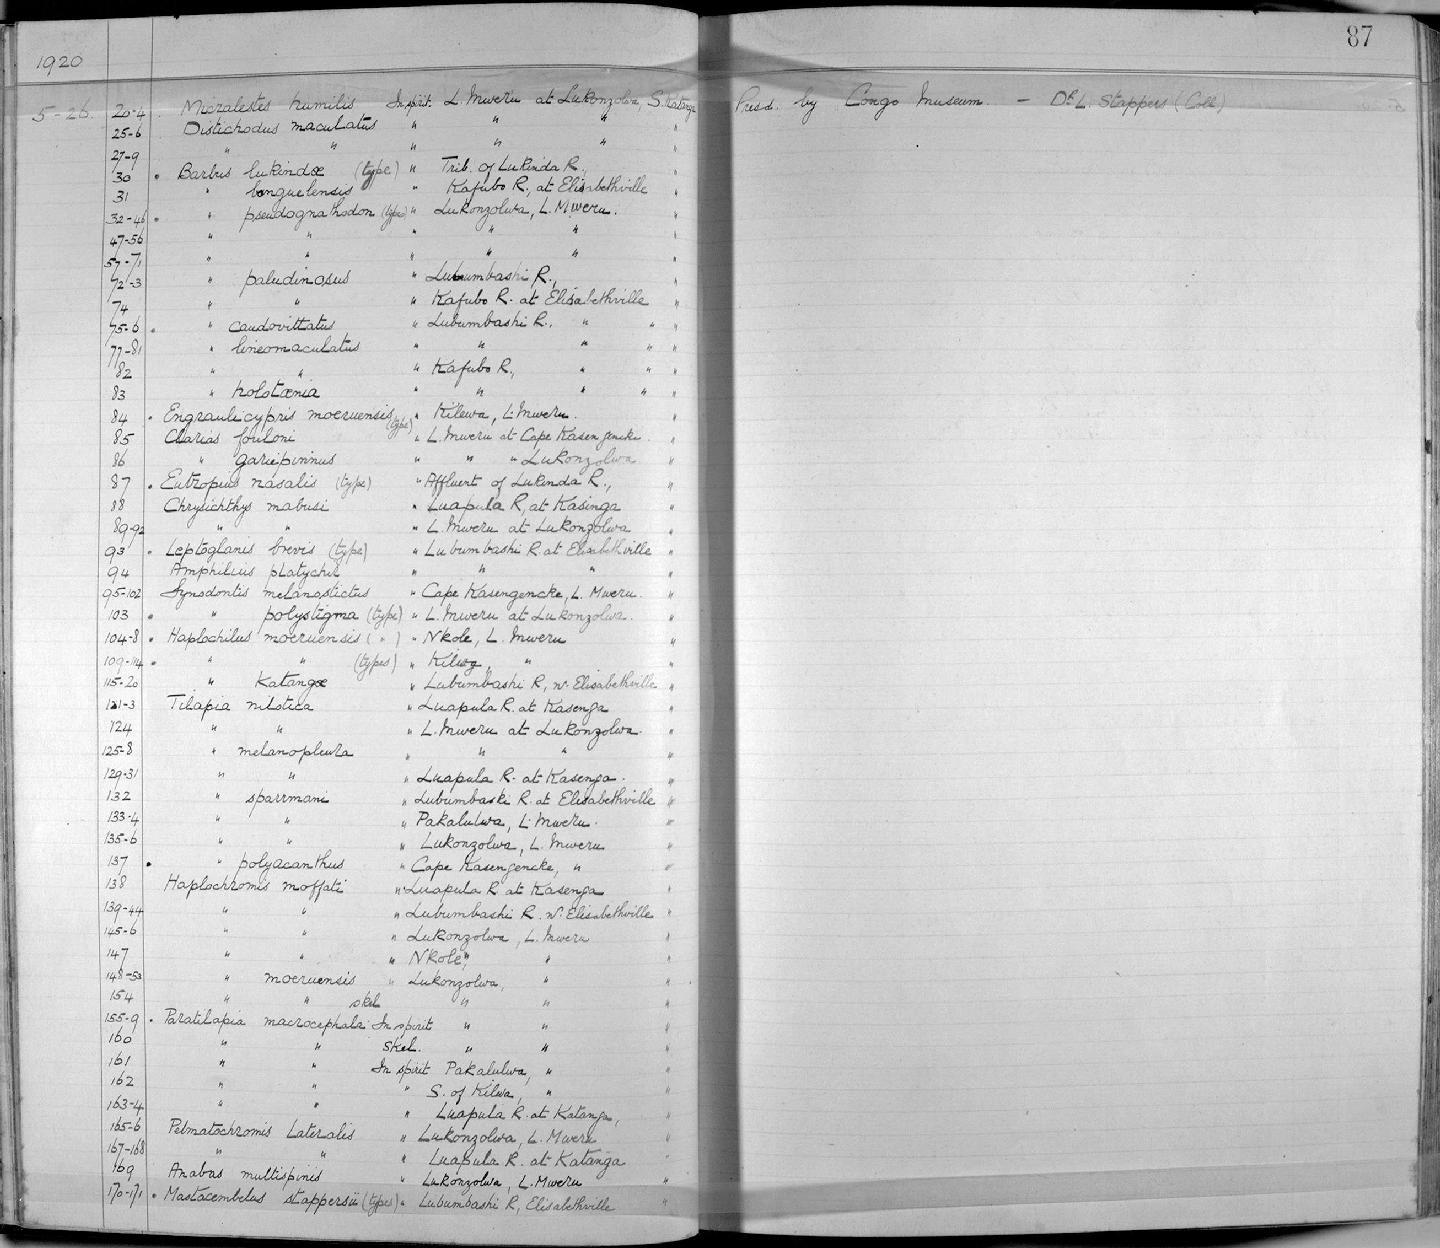 87
1920
5-26. 20-4 Micralestes humilis In spirit. L. Mweru at Lukonzolwa, S. Katanga Presd. by Congo Museum. — Dr. L. Stappers (Coll)
25-6 Distichodus maculatus " " " "
27-9 " " " " " "
30 Barbus lukindæ (type) " Trib. of Lukinda R., "
31 " benguelensis " Kafubo R., at Elisabethville "
32-46 " pseudognathodon (type) " Lukonzolwa, L. Mweru. "
47-56 " " " " " "
57-71 " " " " " "
72-3 " paludinosus " Lubumbashi R., "
74 " " " Kafubo R. at Elisabethville "
75-6 " caudovittatus " Lubumbashi R., " " "
77-81 " lineomaculatus " " " " "
82 " " " Kafubo R., " " "
83 " holotænia " " " " "
84 Engraulicypris moeruensis (type) " Kilewa, L. Mweru. "
85 Clarias fouloni " L. Mweru at Cape Kasengeneke. "
86 " gariepinnus " " " Lukonzolwa "
87 Eutropius nasalis (type) " Affluent of Lukinda R., "
88 Chrysichthys mabusi " Luapula R, at Kasinga "
89-92 " " " L. Mweru at Lukonzolwa "
93 Leptoglanis brevis (type) " Lubumbashi R. at Elisabethville "
94 Amphilius platychir " " " "
95-102 Synodontis melanostictus " Cape Kasengeneke, L. Mweru. "
103 " polystigma (type) " L. Mweru at Lukonzolwa. "
104-8 Haplochilus moeruensis ( " ) " Nkole, L. Mweru "
109-114 " " (types) " Kilwa, " "
115-20 " Katangæ " Lubumbashi R, nr. Elisabethville "
121-3 Tilapia nilotica " Luapula R. at Kasenga "
124 " " " L. Mweru at Lukonzolwa. "
125-8 " melanopleura " " " "
129-31 " " " Luapula R. at Kasenga. "
132 " sparrmani " Lubumbashi R. at Elisabethville "
133-4 " " " Pakalulwa, L. Mweru. "
135-6 " " " Lukonzolwa, L. Mweru "
137 " polyacanthus " Cape Kasengeneke, " "
138 Haplochromis moffati " Luapula R. at Kasenga "
139-44 " " " Lubumbashi R. nr. Elisabethville "
145-6 " " " Lukonzolwa, L. Mweru "
147 " " " Nkole, " "
148-53 " moeruensis " Lukonzolwa, " "
154 " " skel " " "
155-9 Paratilapia macrocephala In spirit " " "
160 " " skel. " " "
161 " " In spirit Pakalulwa, " "
162 " " " S. of Kilwa, " "
163-4 " " " Luapula R. at Katanga, "
165-6 Pelmatochromis Lateralis " Lukonzolwa, L. Mweru "
167-168 " " " Luapula R. at Katanga "
169 Anabas multispinis " Lukonzolwa, L. Mweru "
170-171 Mastacembelus stappersii (types) " Lubumbashi R, Elisabethville "